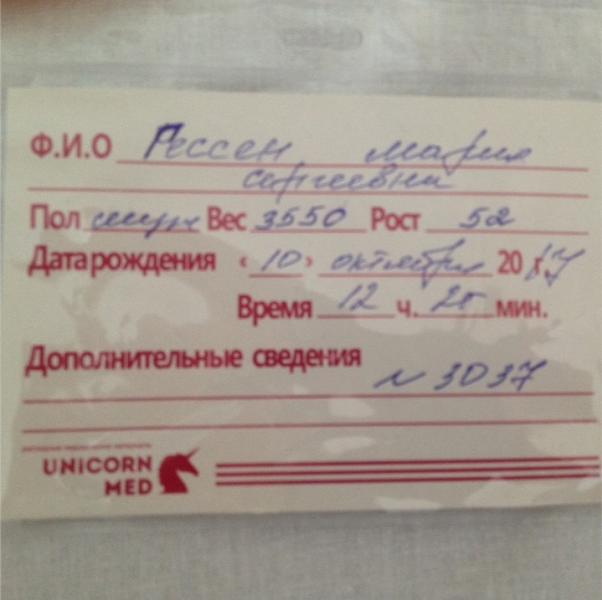 Ф.И.О Рессен Мария
Сергеевна
Пол муж Вес 3550 Рост 52
Дата рождения «10» октября 2017
Время 12 ч. 25 мин.
Дополнительные сведения
N 3037
UNICORN
MED